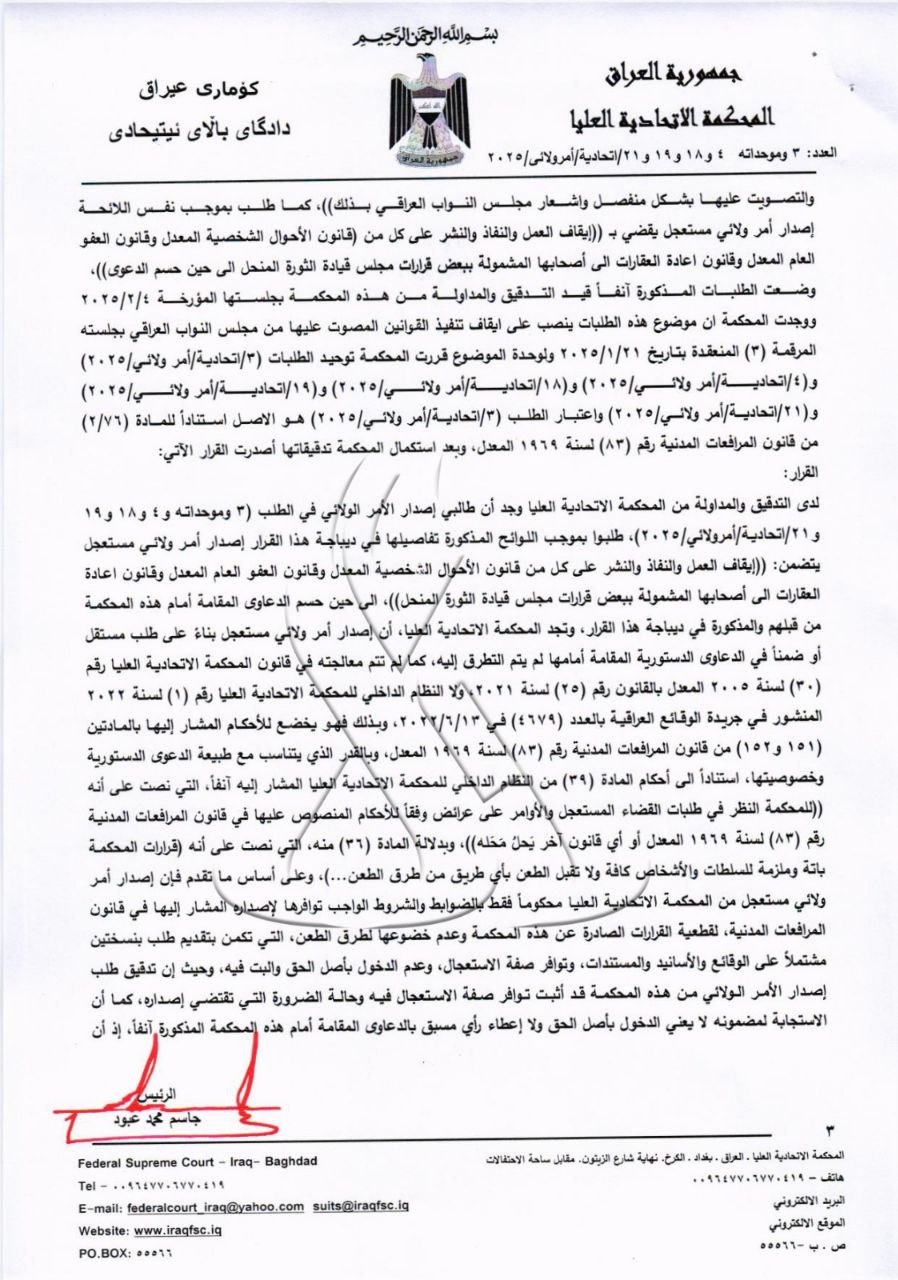 بسم الله الرحمن الرحيم
جمهورية العراق
المحكمة الاتحادية العليا
كۆماری عیراق
دادگای باڵای ئیتیحادی
الله اكبر
جمهورية العراق
العدد: ٣ وموحداته ٤ و١٨ و١٩ و٢١/اتحادية/أمرولائي/٢٠٢٥
والتصويت عليها بشكل منفصل واشعار مجلس النواب العراقي بذلك))، كما طلب بموجب نفس اللائحة
إصدار أمر ولائي مستعجل يقضي بـ ((إيقاف العمل والنفاذ والنشر على كل من (قانون الأحوال الشخصية المعدل وقانون العفو
العام المعدل وقانون اعادة العقارات الى أصحابها المشمولة ببعض قرارات مجلس قيادة الثورة المنحل الى حين حسم الدعوى))،
وضعت الطلبات المذكورة آنفاً قيد التدقيق والمداولة من هذه المحكمة بجلستها المؤرخة ٢٠٢٥/٢/٤
ووجدت المحكمة ان موضوع هذه الطلبات ينصب على ايقاف تنفيذ القوانين المصوت عليها من مجلس النواب العراقي بجلسته
المرقمة (٣) المنعقدة بتاريخ ٢٠٢٥/١/٢١ ولوحدة الموضوع قررت المحكمة توحيد الطلبات (٣/اتحادية/أمر ولائي/٢٠٢٥)
و(٤/اتحادية/أمر ولائي/٢٠٢٥) و(١٨/اتحادية/أمر ولائي/٢٠٢٥) و(١٩/اتحادية/أمر ولائي/٢٠٢٥)
و(٢١/اتحادية/أمر ولائي/٢٠٢٥) واعتبار الطلب (٣/اتحادية/أمر ولائي/٢٠٢٥) هو الاصل استناداً للمادة (٢/٧٦)
من قانون المرافعات المدنية رقم (٨٣) لسنة ١٩٦٩ المعدل، وبعد استكمال المحكمة تدقيقاتها أصدرت القرار الآتي:
القرار:
لدى التدقيق والمداولة من المحكمة الاتحادية العليا وجد أن طالبي إصدار الأمر الولائي في الطلب (٣ وموحداته و٤ و١٨ و١٩
و٢١/اتحادية/أمرولائي/٢٠٢٥)، طلبوا بموجب اللوائح المذكورة تفاصيلها في ديباجة هذا القرار إصدار أمر ولائي مستعجل
يتضمن: ((إيقاف العمل والنفاذ والنشر على كل من قانون الأحوال الشخصية المعدل وقانون العفو العام المعدل وقانون اعادة
العقارات الى أصحابها المشمولة ببعض قرارات مجلس قيادة الثورة المنحل))، الى حين حسم الدعاوى المقامة أمام هذه المحكمة
من قبلهم والمذكورة في ديباجة هذا القرار، وتجد المحكمة الاتحادية العليا، أن إصدار أمر ولائي مستعجل بناءً على طلب مستقل
أو ضمناً في الدعاوى الدستورية المقامة أمامها لم يتم التطرق إليه، كما لم تتم معالجته في قانون المحكمة الاتحادية العليا رقم
(٣٠) لسنة ٢٠٠٥ المعدل بالقانون رقم (٢٥) لسنة ٢٠٢١، ولا النظام الداخلي للمحكمة الاتحادية العليا رقم (١) لسنة ٢٠٢٢
المنشور في جريدة الوقائع العراقية بالعدد (٤٦٧٩) في ٢٠٢٢/٦/١٣، وبذلك فهو يخضع للأحكام المشار إليها بالمادتين
(١٥١ و١٥٢) من قانون المرافعات المدنية رقم (٨٣) لسنة ١٩٦٩ المعدل، وبالقدر الذي يتناسب مع طبيعة الدعوى الدستورية
وخصوصيتها، استناداً الى أحكام المادة (٣٩) من النظام الداخلي للمحكمة الاتحادية العليا المشار إليه آنفاً، التي نصت على أنه
((للمحكمة النظر في طلبات القضاء المستعجل والأوامر على عرائض وفقاً للأحكام المنصوص عليها في قانون المرافعات المدنية
رقم (٨٣) لسنة ١٩٦٩ المعدل أو أي قانون آخر يَحلُ مَحَله))، وبدلالة المادة (٣٦) منه، التي نصت على أنه (قرارات المحكمة
باتة وملزمة للسلطات والأشخاص كافة ولا تقبل الطعن بأي طريق من طرق الطعن...)، وعلى أساس ما تقدم فإن إصدار أمر
ولائي مستعجل من المحكمة الاتحادية العليا محكوماً فقط بالضوابط والشروط الواجب توافرها لإصداره المشار إليها في قانون
المرافعات المدنية، لقطعية القرارات الصادرة عن هذه المحكمة وعدم خضوعها لطرق الطعن، التي تكمن بتقديم طلب بنسختين
مشتملاً على الوقائع والأسانيد والمستندات، وتوافر صفة الاستعجال، وعدم الدخول بأصل الحق والبت فيه، وحيث إن تدقيق طلب
إصدار الأمر الولائي من هذه المحكمة قد أثبت توافر صفة الاستعجال فيه وحالة الضرورة التي تقتضي إصداره، كما أن
الاستجابة لمضمونه لا يعني الدخول بأصل الحق ولا إعطاء رأي مسبق بالدعاوى المقامة أمام هذه المحكمة المذكورة آنفاً، إذ أن
الرئيس
جاسم محمد عبود
٣
المحكمة الاتحادية العليا . العراق . بغداد . الكرخ. نهاية شارع الزيتون. مقابل ساحة الاحتفالات
هاتف – ٠٠٩٦٤٧٧٠٦٧٧٠٤١٩
البريد الالكتروني
الموقع الالكتروني
ص . ب -٥٥٥٦٦
Federal Supreme Court – Iraq– Baghdad
Tel – ٠٠٩٦٤٧٧٠٦٧٧٠٤١٩
E-mail: federalcourt_iraq@yahoo.com suits@iraqfsc.iq
Website: www.iraqfsc.iq
PO.BOX: ٥٥٥٦٦